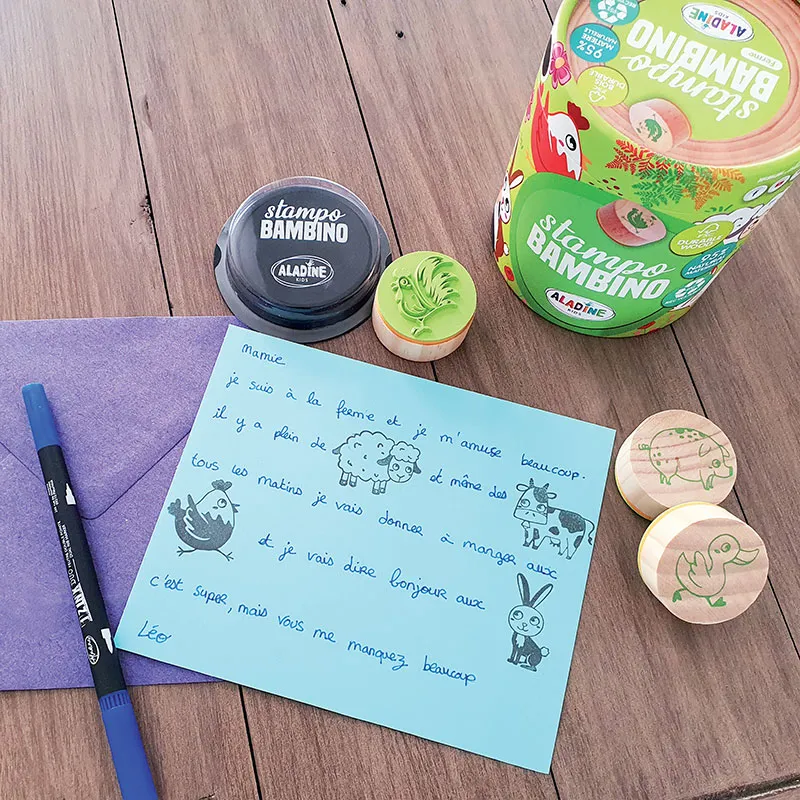 ALADINE
KIDS
stampo
BAMBINO
Ferme
95%
MATIÈRE
NATURELLE
BOIS
DURABLE
stampo
BAMBINO
ALADINE
DURABLE
WOOD
stampo
BAMBINO
ALADINE
KIDS
Mamie
je suis à la ferme et je m'amuse beaucoup.
il y a plein de et même des
tous les matins je vais donner à manger aux
et je vais dire bonjour aux
c'est super, mais vous me manquez beaucoup
Léo
IZINK DUO